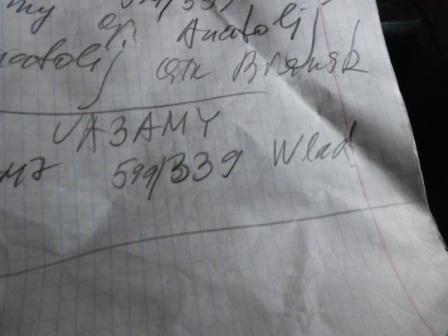 my op. Anatolij
Anatolij QTH Briansk
UA3AMY
599/339 Wlad